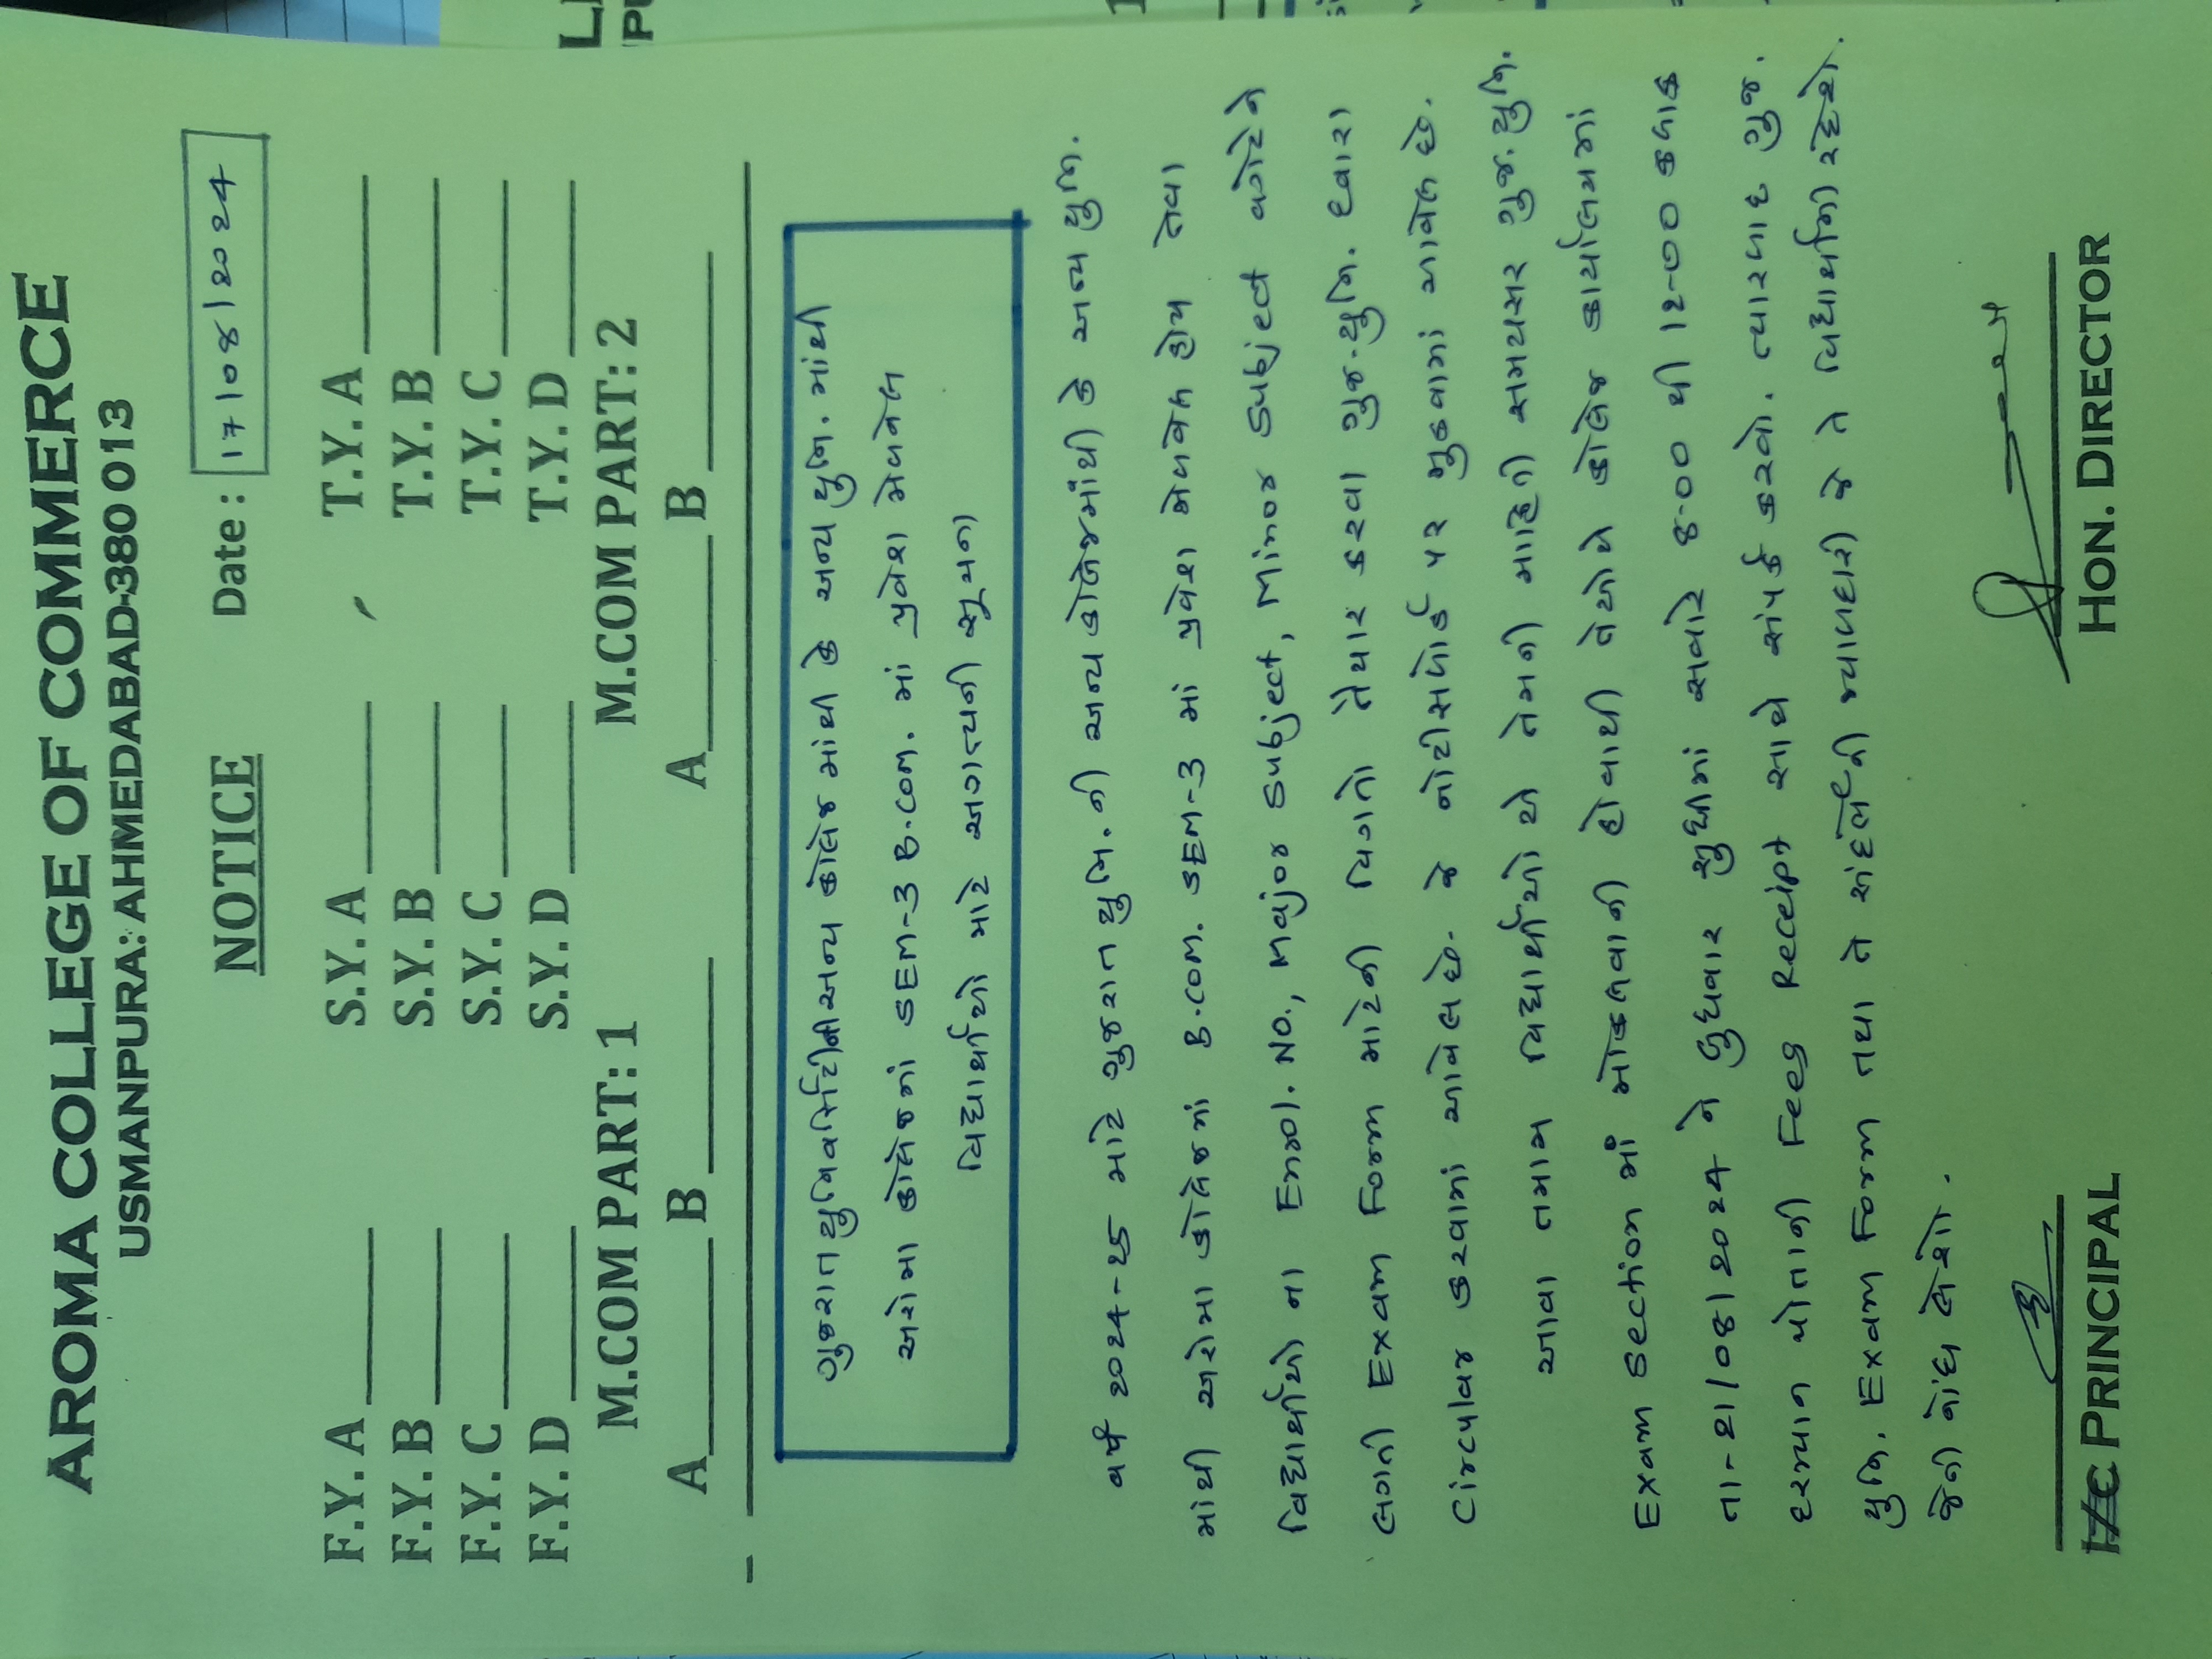 AROMA COLLEGE OF COMMERCE
USMANPURA: AHMEDABAD-380 013
NOTICE Date: 17/08/2024
F.Y. A S.Y. A T.Y. A
F.Y. B S.Y. B T.Y. B
F.Y. C S.Y. C T.Y. C
F.Y. D S.Y. D T.Y. D
M.COM PART: 1 M.COM PART: 2
A B A B
ગુજરાત યુનિવર્સિટીની અન્ય કોલેજ માંથી કે અન્ય યુનિ. માંથી
અરોમા કોલેજમાં SEM-3 B.COM. માં પ્રવેશ મેળવેલ
વિદ્યાર્થીઓ માટે અગત્યની સૂચના
વર્ષ ૨૦૨૪-૨૫ માટે ગુજરાત યુનિ. ની અન્ય કોલેજમાંથી કે અન્ય યુનિ.
માંથી અરોમા કોલેજમાં B.COM. SEM-3 માં પ્રવેશ મેળવેલ હોય તેવા
વિદ્યાર્થીઓ ના Enrol. No., Major Subject, Minor Subject વગેરેને
લગતી Exam Form માટેની વિગતો તૈયાર કરવા ગુજ.યુનિ. દ્વારા
Circular કરવામાં આવેલ છે. જે નોટીસબોર્ડ પર મુકવામાં આવેલ છે.
આવા તમામ વિદ્યાર્થીઓ એ તેમની માહિતી સમયસર ગુજ.યુનિ.
Exam Section માં મોકલવાની હોવાથી તેઓએ કોલેજ કાર્યાલયમાં
તા-૨૧/૦૮/૨૦૨૪ ને બુધવાર સુધીમાં સવારે ૪-૦૦ થી ૧૨-૦૦ કલાક
દરમ્યાન પોતાની Fees Receipt સાથે સંપર્ક કરવો. ત્યારબાદ ગુજ.
યુનિ. Exam Form તથા તે સંદર્ભની જવાબદારી જે તે વિદ્યાર્થીની રહેશે.
જેની નોંધ લેશો.
PRINCIPAL HON. DIRECTOR